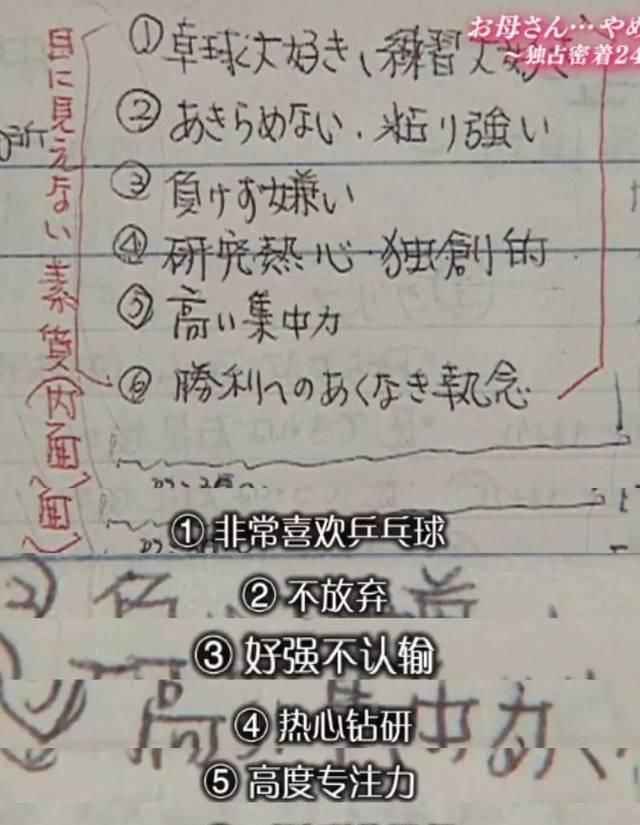 お母さん…やめ
独占密着24
目に見えない素質(内面)
①卓球大好き、練習大好き
②あきらめない、粘り強い
③負けず嫌い
④研究熱心・独創的
⑤高い集中力
⑥勝利へのあくなき執念
面)
① 非常喜欢乒乓球
② 不放弃
③ 好强不认输
④ 热心钻研
高い集中力
⑤ 高度专注力